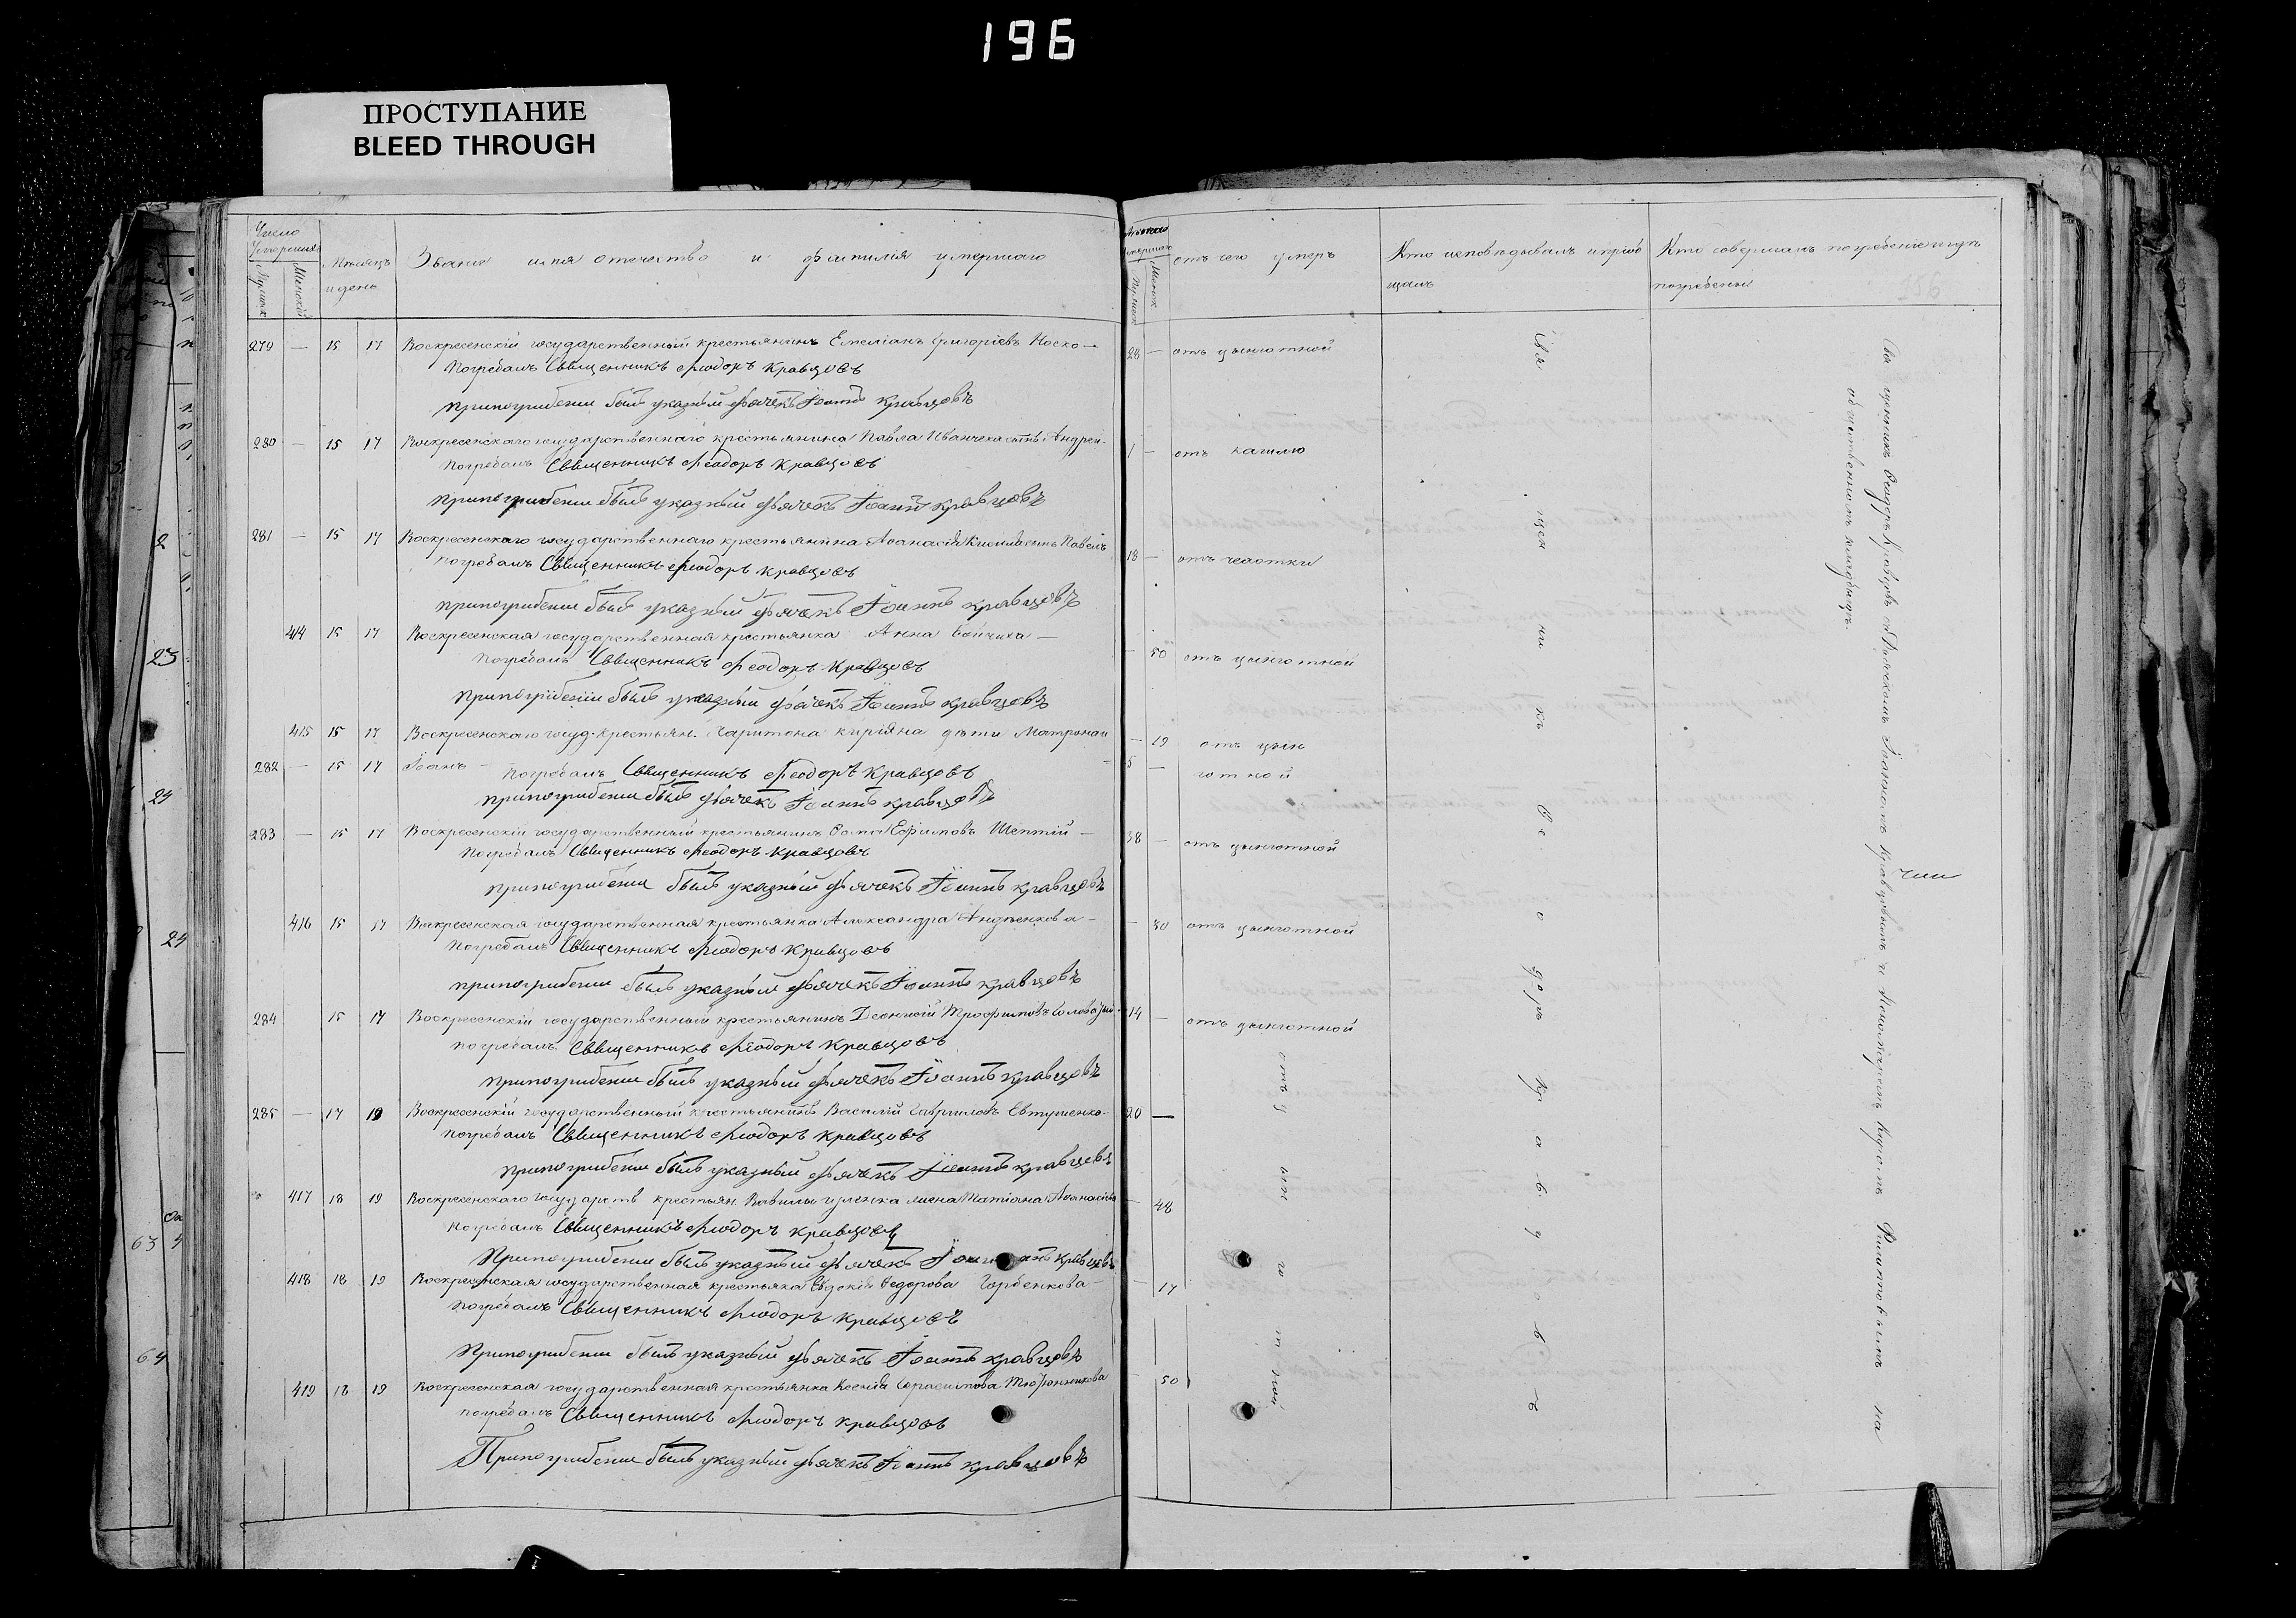 196
ПРОСТУПАНИЕ
BLEED THROUGH
Число
Умершихъ
Мужск
Женской
Мѣсяцъ
и день
Званіе имя отечество и фамилія умершаго
279 — 15 17 Воскресенскій государственный крестьянинъ Емеліанъ Григоріевъ Носко —
Погребалъ Священникъ Феодоръ Кравцовъ
при погрибении былъ указный дьячекъ Іоаннъ Кравцовъ
280 — 15 17 Воскресенскаго государственнаго крестьянина Павла Иванчека сынъ Андрей
Погребалъ Священникъ Феодоръ Кравцовъ
при погрибении былъ указный дьячекъ Іоаннъ Кравцовъ
281 — 15 17 Воскресенскаго государственнаго крестьянина Аѳанасія сынъ Павелъ
Погребалъ Священникъ Феодоръ Кравцовъ
при погрибении былъ указный дьячекъ Іоаннъ Кравцовъ
414 15 17 Воскресенская государственная крестьянка Анна —
Погребалъ Священникъ Феодоръ Кравцовъ
при погрибении былъ указный дьячекъ Іоаннъ Кравцовъ
415 15 17 Воскресенскаго госуд. крестьян. Харитона Киріяна дѣти Матрона и
282 — 15 17 Іоанъ —
Погребалъ Священникъ Феодоръ Кравцовъ
при погрибении былъ дьячекъ Іоаннъ Кравцовъ
283 — 15 17 Воскресенскій государственный крестьянинъ Ѳома Ефимовъ Шептій —
Погребалъ Священникъ Феодоръ Кравцовъ
при погрибении былъ указный дьячекъ Іоаннъ Кравцовъ
416 15 17 Воскресенская государственная крестьянка Александра Андренкова —
Погребалъ Священникъ Феодоръ Кравцовъ
при погрибении былъ указный дьячекъ Іоаннъ Кравцовъ
284 15 17 Воскресенскій государственный крестьянинъ Деонисій Трофимовъ
Погребалъ Священникъ Феодоръ Кравцовъ
при погрибении былъ указный дьячекъ Іоаннъ Кравцовъ
285 — 17 19 Воскресенскій государственный крестьянинъ Василій Гавриловъ Евтушенко
Погребалъ Священникъ Феодоръ Кравцовъ
при погрибении былъ указный дьячекъ Іоаннъ Кравцовъ
417 18 19 Воскресенскаго государств крестьян. Вавилы жена Татіана Аѳанасіева
Погребалъ Священникъ Феодоръ Кравцовъ
При погрибении былъ указный дьячекъ Кравцовъ
418 18 19 Воскресенская государственная крестьянка Евдокія Ѳедорова Горбенкова —
Погребалъ Священникъ Феодоръ Кравцовъ
При погрибении былъ указный дьячекъ Іоаннъ Кравцовъ
419 18 19 Воскресенская государственная крестьянка Ксенія Герасимова
Погребалъ Священникъ Феодоръ Кравцовъ
При погрибении былъ указный дьячекъ Іоаннъ Кравцовъ
отъ чего умеръ
Кто исповѣдывалъ и пріоб
щалъ
Кто совершалъ погребеніе и гдѣ
погребены
28 — отъ цынготной
1 — отъ кашлю
18 — отъ чахотки
— 50 отъ цынготной
— 19 отъ цын
5 — готной
38 — отъ цынготной
— 30 отъ цынготной
14 — отъ цынготной
20 —
— 48
— 17
— 50
отъ цын го т ной
Свя щен ни къ Ѳе о доръ Кр а в ц о в ъ
Священникъ Ѳеодоръ Кравцовъ съ Дьячкомъ Іоанномъ Кравцовымъ и Пономаремъ Филиповымъ на
общественномъ кладбищѣ.